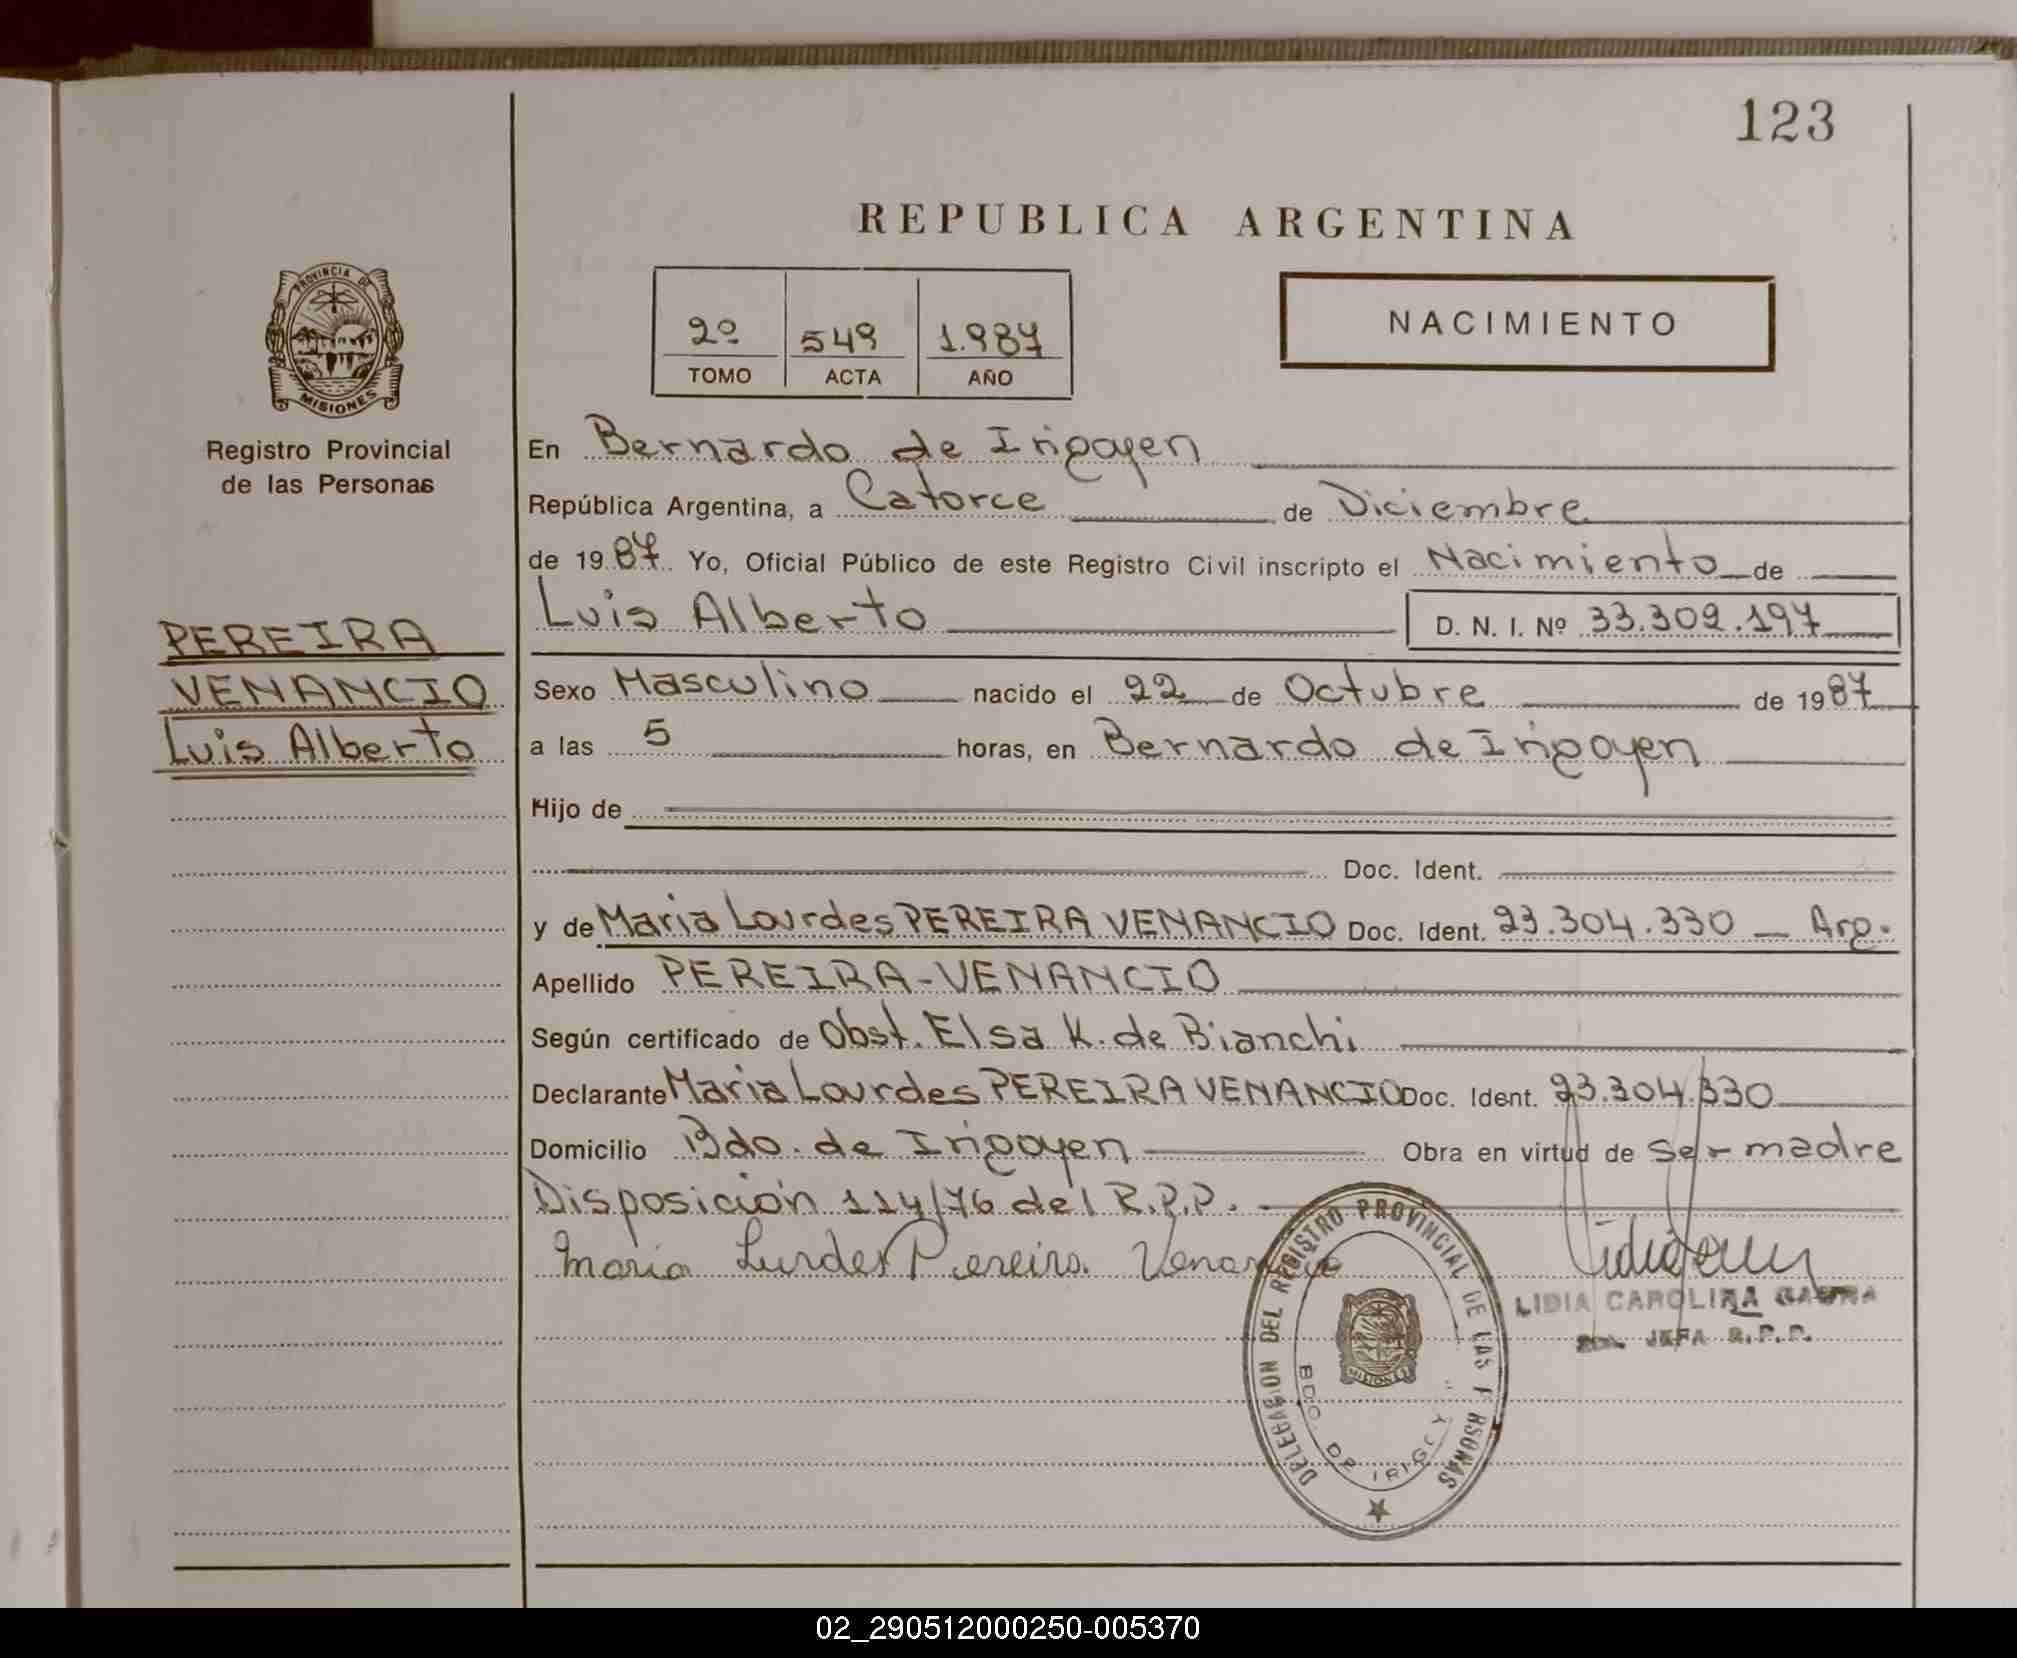 123
REPUBLICA ARGENTINA
PROVINCIA DE
MISIONES
Registro Provincial
de las Personas
2º 549 1.987
TOMO ACTA AÑO
NACIMIENTO
PEREIRA
VENANCIO
Luis Alberto
En Bernardo de Irigoyen
República Argentina, a Catorce de Diciembre
de 1987 Yo, Oficial Público de este Registro Civil inscripto el Nacimiento de
Luis Alberto D. N. I. Nº 33.309.197
Sexo Masculino nacido el 22 de Octubre de 1987
a las 5 horas, en Bernardo de Irigoyen
Hijo de
Doc. Ident.
y de Maria Lourdes PEREIRA VENANCIO Doc. Ident. 23.304.330 — Arg.
Apellido PEREIRA-VENANCIO
Según certificado de Obst. Elsa K. de Bianchi
Declarante Maria Lourdes PEREIRA VENANCIO Doc. Ident. 23.304.330
Domicilio Bdo. de Irigoyen Obra en virtud de ser madre
Disposición 114/76 del R.P.P.
Maria Lurdes Pereira Venancio
LIDIA CAROLINA
JEFA R.P.P.
DELEGACION DEL REGISTRO PROVINCIAL DE LAS PERSONAS
MISIONES
BDO. DE IRIGOY
02_290512000250-005370